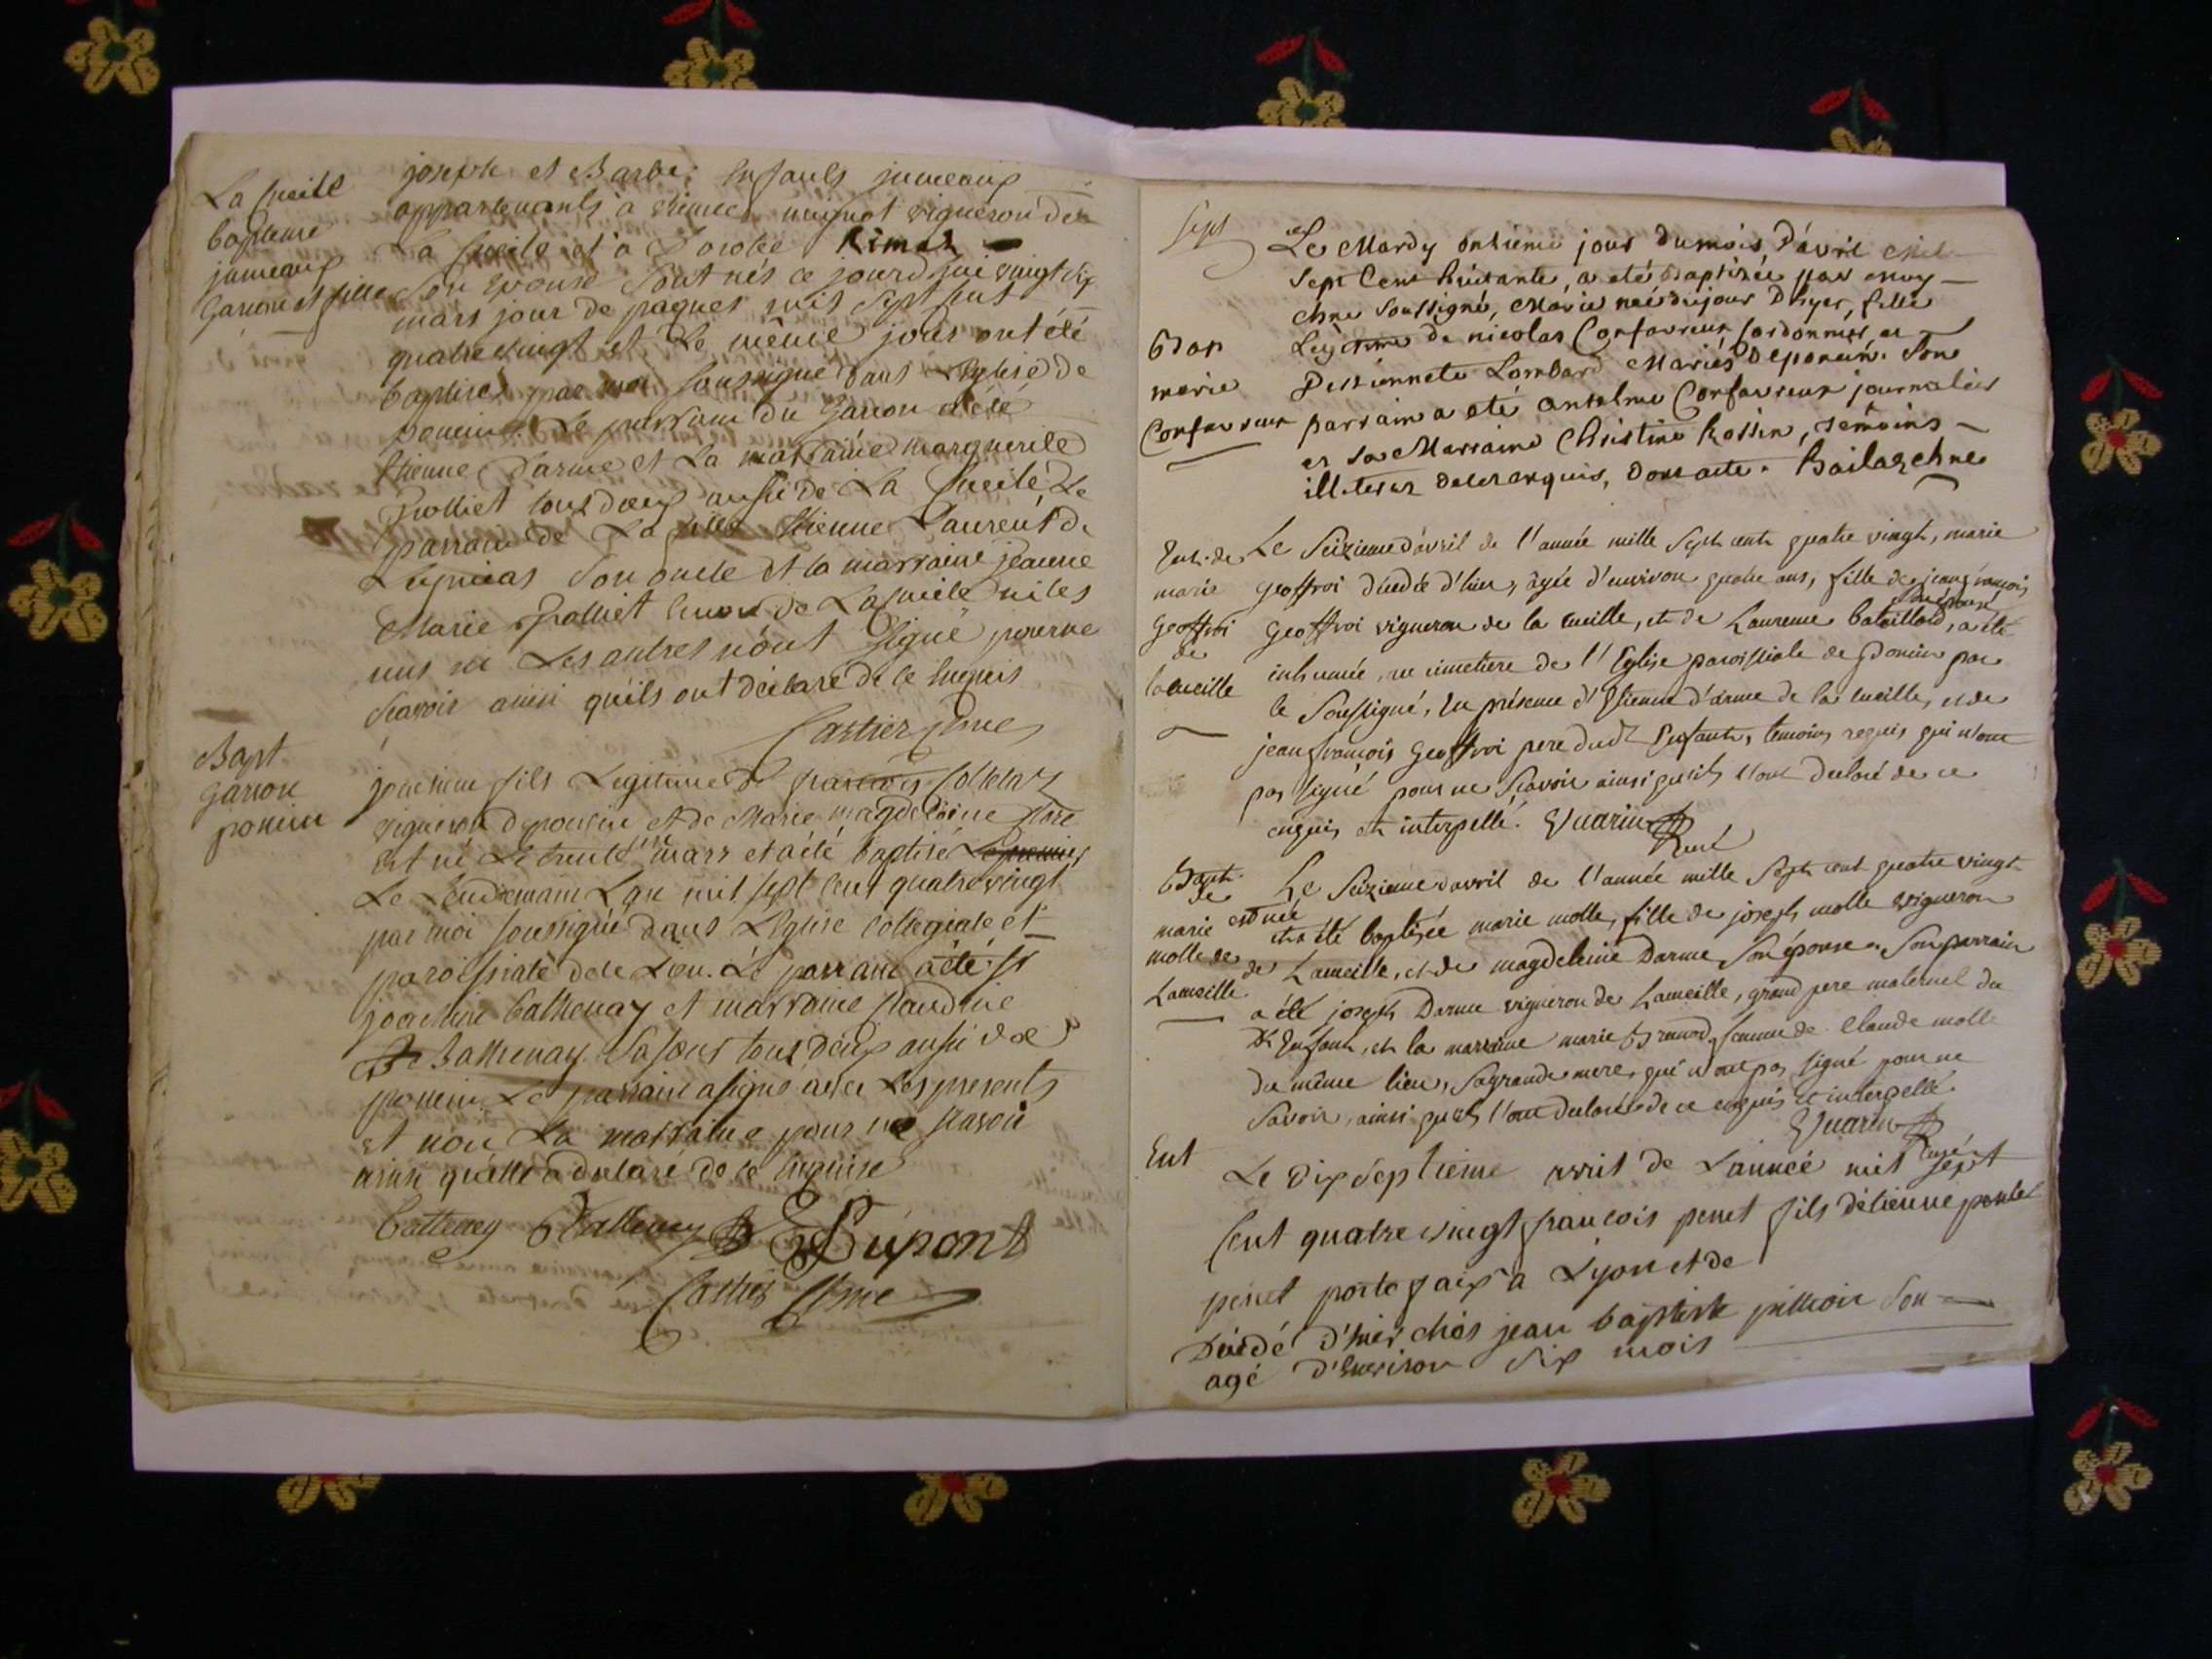 La Cueille
bapteme
jumeaux
Garçon et fille
joseph et Barbe Enfants jumeaux
appartenants à etienne mugnot vigneron de
La Cueille et a Dorotée Rimet
Son Epouse Sont nés ce jourd'hui vingt six
mars jour de paques mil Sept Cent
quatre vingt et Le même jour ont été
baptisés par moi Soussigné dans L'Eglise de
poncin. Le parrain du Garçon a été
Etienne Darme et La marraine marguerite
Polliet tous deux aussi de La Cueille, Le
parrain de La fille Etienne Laurent de
Son oncle et la marraine jeanne
Marie Polliet de La Cueille ni les
uns ni Les autres n'ont Signé pour ne
Scavoir ainsi qu'ils ont déclaré de ce Enquis
Cartier Chne
Bapt
Garçon
poncin
joachim fils Legitime de francois Collet
vigneron de poncin et de Marie magdeleine
Est né Le trente mars et a été baptisé Le premier
Le Lendemain L'an mil sept Cent quatre vingt
par moi soussigné dans L'Eglise Collegiale et
paroissiale de ce Lieu. Le parrain a été Sr
joachim Battenay et marraine Claudine
Battenay Sa Soeur tous deux aussi de
poncin Le parrain a signé avec Les presents
et non La marraine pour ne scavoir
ainsi qu'elle a declaré de ce Enquise
Battenay Battenay Dupont
Cartier Chne
Sept
Bap
marie
Confavreux
Le Mardy onzieme jour du mois D'avril Mil
Sept Cent huitante, a eté Baptizée par moy
chne Soussigné, Marie née du jour D'hyer, fille
Legitime de nicolas Confavreux Cordonnier et
Pessionnete Lombard Mariés De poncin. Son
parrain a eté anselme Confavreux journalier
et Sa Marraine Christine Rossin, temoins
illiteres de ce enquis, Dont acte. Bailat chne
Ent. de
marie
Geoffroi
de
la cueille
Le Seizieme d'avril de l'année mille Sept cent quatre vingt, marie
Geoffroi décédée d'hier, agée d'environ quatre ans, fille de jean françois
Geoffroi vigneron de la cueille, et de Laurence bataillard, son epouse a été
inhumée, au cimetiere de l'Eglise paroissiale de Poncin par
le Soussigné, En présence d'Etienne d'arme de la cueille, et de
jean françois Geoffroi pere dudt Enfant, temoins requis qui n'ont
pas signé pour ne Scavoir ainsi qu'ils l'ont declaré de ce
enquis et interpellé. Evuarin
Curé
Bapt.
de
marie
molle de
Lacueille
Le Seizieme d'avril de l'année mille Sept cent quatre vingt
est née
et a été baptisée marie molle, fille de joseph molle vigneron
de Lacueille, et de magdeleine Darme Son épouse. Son parrain
a été joseph Darme vigneron de Lacueille, grand pere maternel du
dt Enfant, et la marraine marie femme de Claude molle
du même lieu, Sa grande mere, qui n'ont pas signé pour ne
Savoir, ainsi qu'ils l'ont declaré de ce enquis et interpellé.
Evuarin
Curé
Ent
Le dix Septieme avril de L'année mil sept
Cent quatre vingt francois penet fils d'etienne
penet porte faix a Lyon et de
Décédé d'hier chés jean baptiste pittion Son
agé d'Environ Six mois